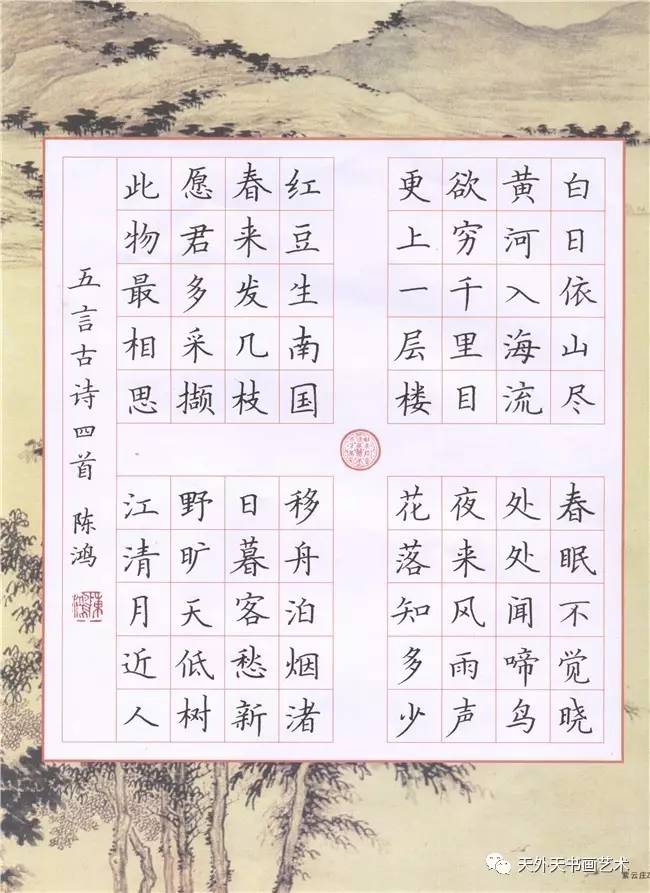 白日依山尽
黄河入海流
欲穷千里目
更上一层楼
春眠不觉晓
处处闻啼鸟
夜来风雨声
花落知多少
红豆生南国
春来发几枝
愿君多采撷
此物最相思
移舟泊烟渚
日暮客愁新
野旷天低树
江清月近人
五言古诗四首 陈鸿
天外天书画艺术